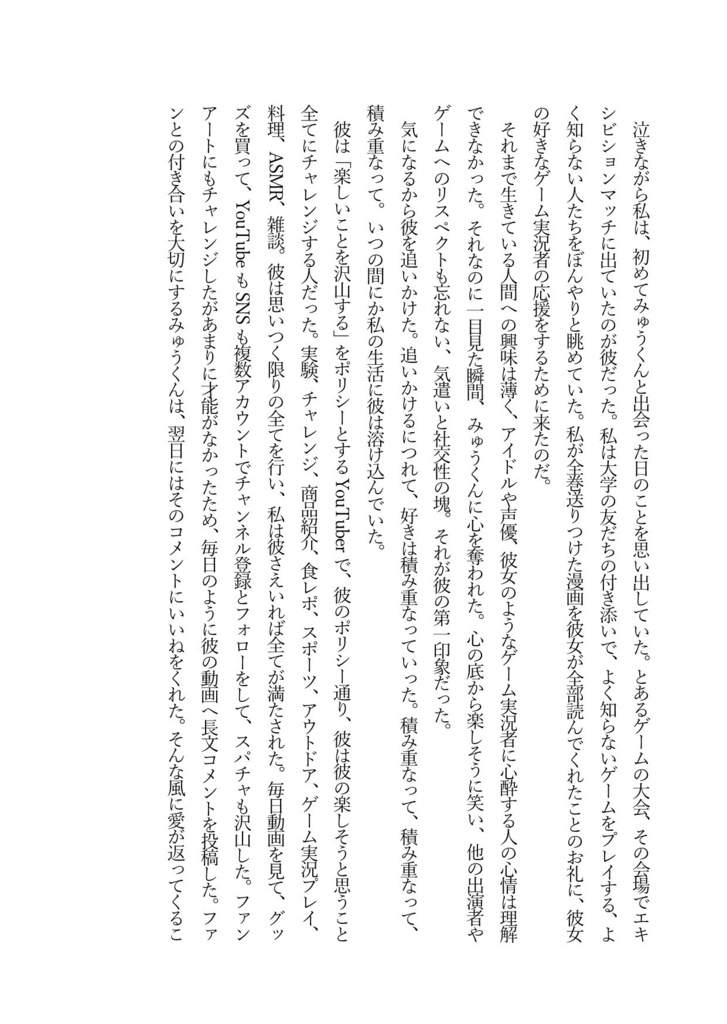 泣きながら私は、初めてみゅうくんと出会った日のことを思い出していた。とあるゲームの大会、その会場でエキ
シビションマッチに出ていたのが彼だった。私は大学の友だちの付き添いで、よく知らないゲームをプレイする、よ
く知らない人たちをぼんやりと眺めていた。私が全巻送りつけた漫画を彼女が全部読んでくれたことのお礼に、彼女
の好きなゲーム実況者の応援をするために来たのだ。
　それまで生きている人間への興味は薄く、アイドルや声優、彼女のようなゲーム実況者に心酔する人の心情は理解
できなかった。それなのに一目見た瞬間、みゅうくんに心を奪われた。心の底から楽しそうに笑い、他の出演者や
ゲームへのリスペクトも忘れない、気遣いと社交性の塊。それが彼の第一印象だった。
　気になるから彼を追いかけた。追いかけるにつれて、好きは積み重なっていった。積み重なって、積み重なって、
積み重なって。いつの間にか私の生活に彼は溶け込んでいた。
　彼は「楽しいことを沢山する」をポリシーとする YouTuber で、彼のポリシー通り、彼は彼の楽しそうと思うこと
全てにチャレンジする人だった。実験、チャレンジ、商品紹介、食レポ、スポーツ、アウトドア、ゲーム実況プレイ、
料理、ASMR、雑談。彼は思いつく限りの全てを行い、私は彼さえいれば全てが満たされた。毎日動画を見て、グッ
ズを買って、YouTube も SNS も複数アカウントでチャンネル登録とフォローをして、スパチャも沢山した。ファン
アートにもチャレンジしたがあまりに才能がなかったため、毎日のように彼の動画へ長文コメントを投稿した。ファ
ンとの付き合いを大切にするみゅうくんは、翌日にはそのコメントにいいねをくれた。そんな風に愛が返ってくるこ